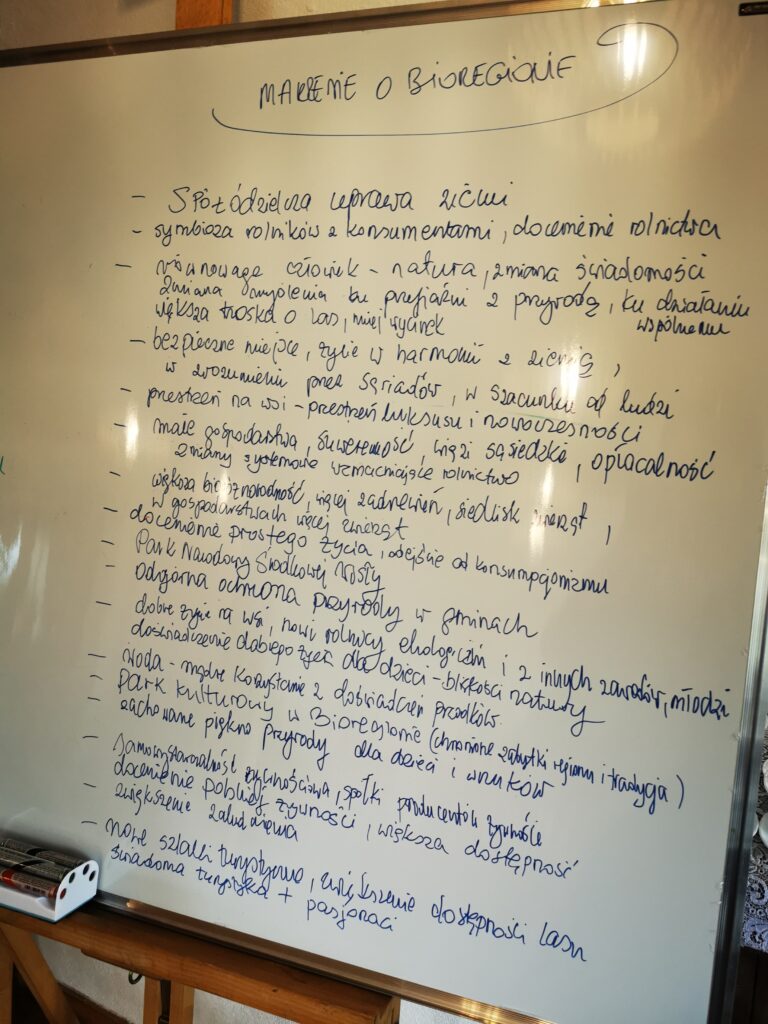 MARZENIE O BIOREGIONIE
- SPÓŁDZIELCZA uprawa ziemi
- symbioza rolników z konsumentami, docenienie rolnictwa
- równowaga człowiek - natura, zmiana świadomości
zmiana myślenia ku przyjaźni z przyrodą, ku działaniu
wspólnemu
większa troska o las, mniej wycinek
- bezpieczne miejsce, życie w harmonii z ziemią,
w zrozumieniu przez sąsiadów, w szacunku od ludzi
- przestrzeń na wsi - przestrzeń luksusu i nowoczesności
- małe gospodarstwa, suwerenność, więzi sąsiedzkie, opłacalność
zmiany systemowe wzmacniające rolnictwo
- większa bioróżnorodność, więcej zadrzewień, siedlisk zwierząt,
w gospodarstwach więcej zwierząt
- docenienie prostego życia, odejście od konsumpcjonizmu
- Park Narodowy Środkowej Wisły
- oddolna ochrona przyrody w gminach
- dobre życie na wsi, nowi rolnicy ekologiczni i z innych zawodów, młodzi
doświadczenie dobrego życia dla dzieci - bliskości natury
- woda - mądre korzystanie z doświadczeń przodków
- Park kulturowy w Bioregionie (chronione zabytki regionu i tradycja)
- zachowane piękno przyrody dla dzieci i wnuków
- samowystarczalność żywnościowa, spółki producentów żywności
docenienie polskiej żywności, większa dostępność
- zwiększenie zaludnienia
- nowe szlaki turystyczne, zwiększenie dostępności lasu
świadoma turystyka + pasjonaci